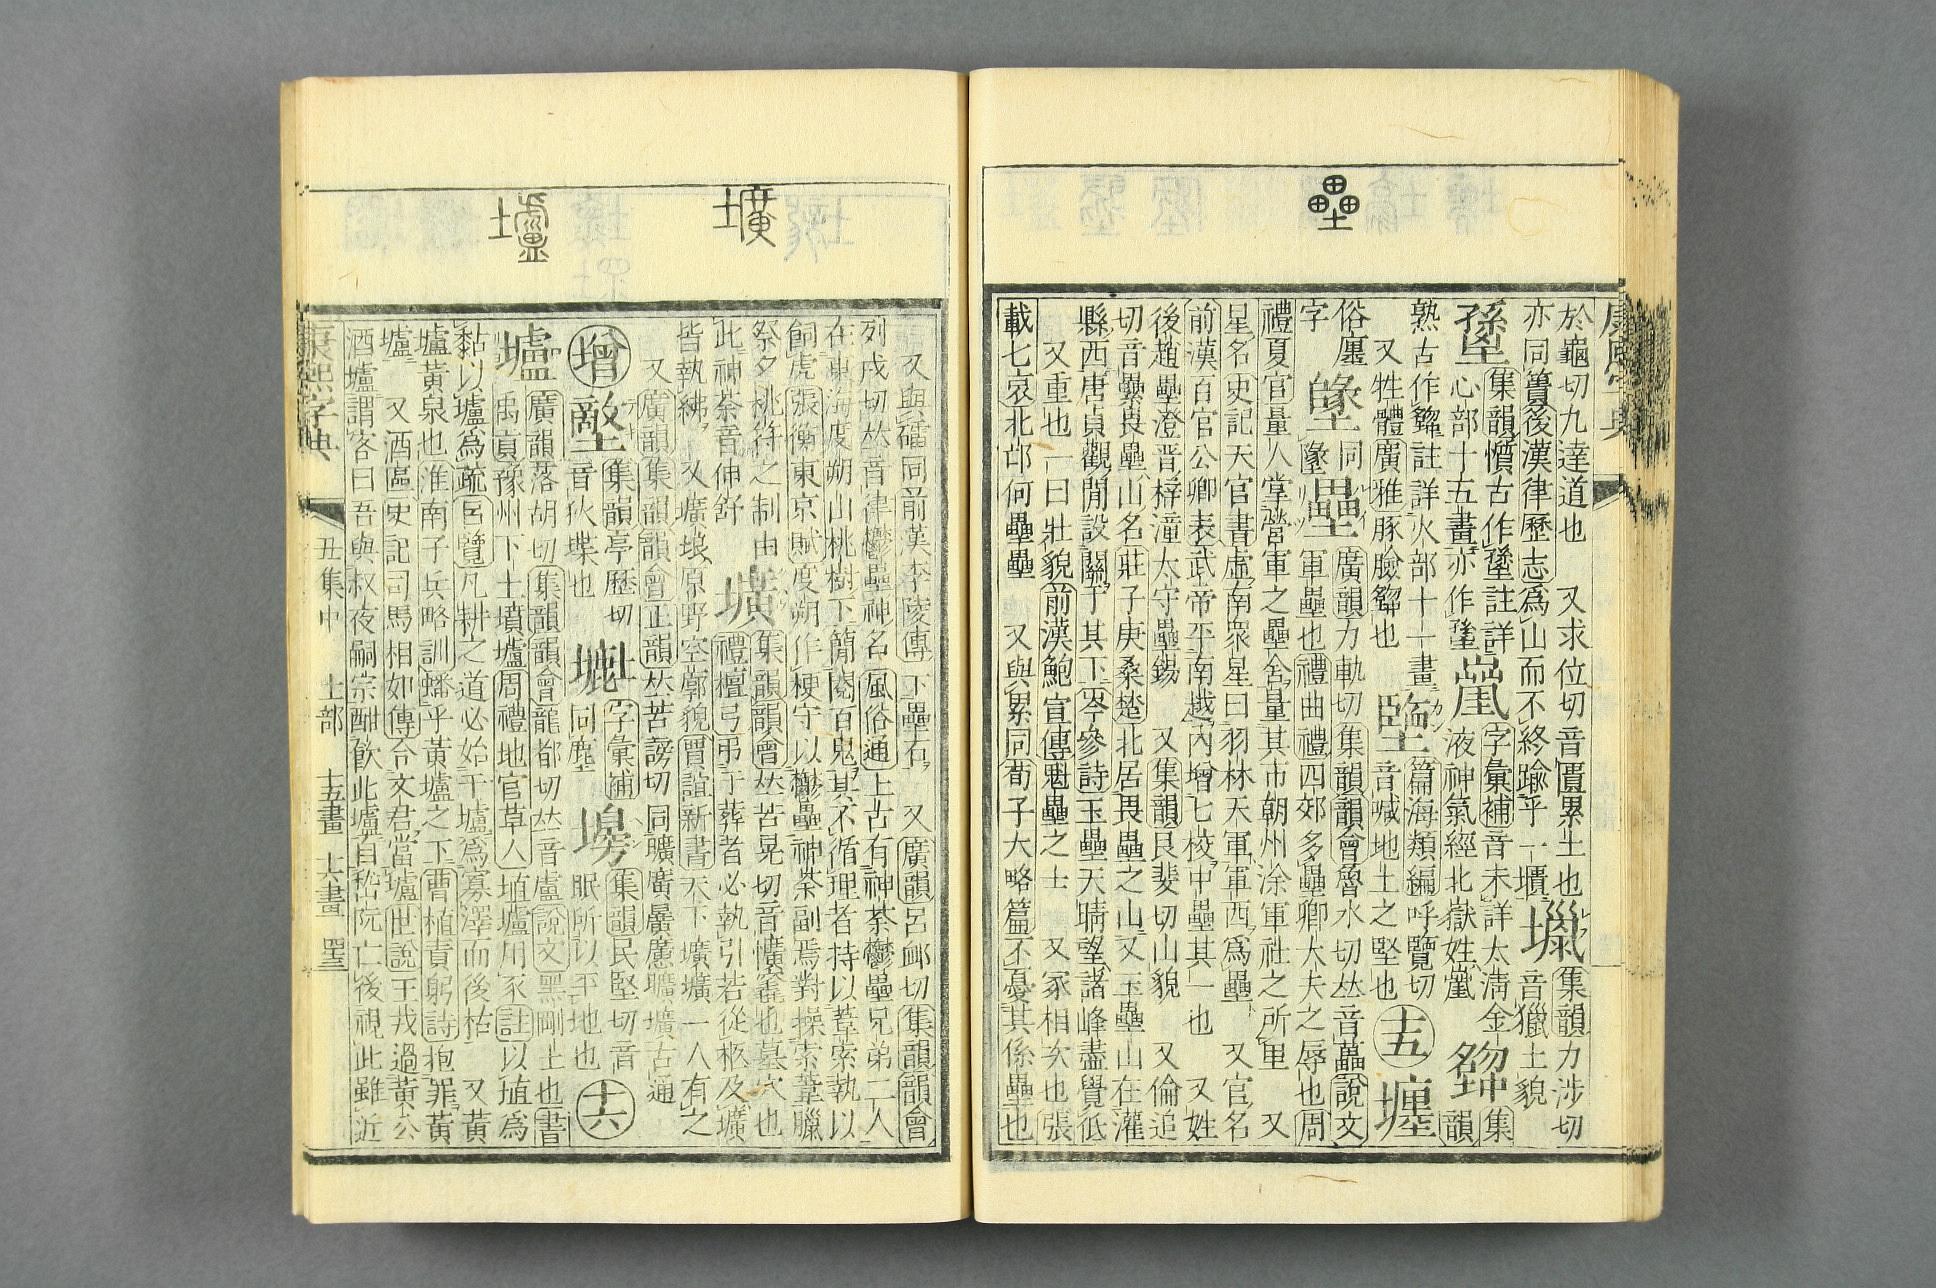 壘
於龜切九達道也 又求位切音匱累土也 壣 集韻力涉切
亦同簣後漢律歷志為山而不終踰乎一壝 音獵土貌
集韻憤古作 註詳 字彙補音未詳太淸金 集
心部十五畫亦作 液神氣經北嶽姓 韻
熟古作 註詳火部十一畫 篇海類編呼覽切
又牲體廣雅豚臉 也 音喊地土之堅也 十五 壥
俗廛 同 壘 廣韻力軌切集韻韻會魯水切𠀤音藟說文
字 墜 軍壘也禮曲禮四郊多壘卿大夫之辱也周
禮夏官量人掌營軍之壘舍量其市朝州涂軍社之所里 又
星名史記天官書虛南衆星曰羽林天軍軍西為壘 又官名
前漢百官公卿表武帝平南越內增七校中壘其一也 又姓
後趙壘澄晋梓潼太守壘錫 又集韻良斐切山貌 又倫追
切音纍畏壘山名莊子庚桑楚北居畏壘之山 又玉壘山在灌
縣西唐貞觀閒設關于其下岑參詩玉壘天晴望諸峰盡覺低
又重也一曰壯貌前漢鮑宣傳魁壘之士 又冢相次也張
載七哀北邙何壘壘 又與累同荀子大略篇不憂其係壘也
壙
壚
又與礧同前漢李陵傳下壘石 又廣韻呂卹切集韻韻會
列戌切𠀤音律鬱壘神名風俗通上古有神荼鬱壘兄弟二人
在東海度朔山桃樹下簡閱百鬼其不循理者持以葦索執以
飼虎張衡東京賦度朔作梗守以鬱壘神荼副焉對操索葦臘
祭夕桃符之制由 集韻韻會𠀤苦晃切音懭窀也墓穴也
此神荼音伸舒 壙 禮檀弓弔于葬者必執引若從柩及壙
皆執紼 又壙埌原野空廓貌賈誼新書天下壙壙一人有之
又廣韻集韻韻會正韻𠀤苦謗切同曠廣曧懬矌壙古通
增 集韻亭歷切 同塵 字彙補 集韻民堅切音
音狄堞也 眠所以平地也 十六
壚 廣韻落胡切集韻韻會龍都切𠀤音盧說文黑剛土也書
禹貢豫州下土墳壚周禮地官草人埴壚用豕註以埴為
黏以壚為疏呂覽凡耕之道必始于壚為寡澤而後枯 又黃
壚黃泉也淮南子兵略訓蟠乎黃壚之下曹植責躬詩抱罪黃
壚 又酒區史記司馬相如傳令文君當壚世說王戎過黃公
酒壚謂客曰吾與叔夜嗣宗酣歡此壚自嵇阮亡後視此雖近
康熙字典 丑集中 土部 十五畫 十六畫